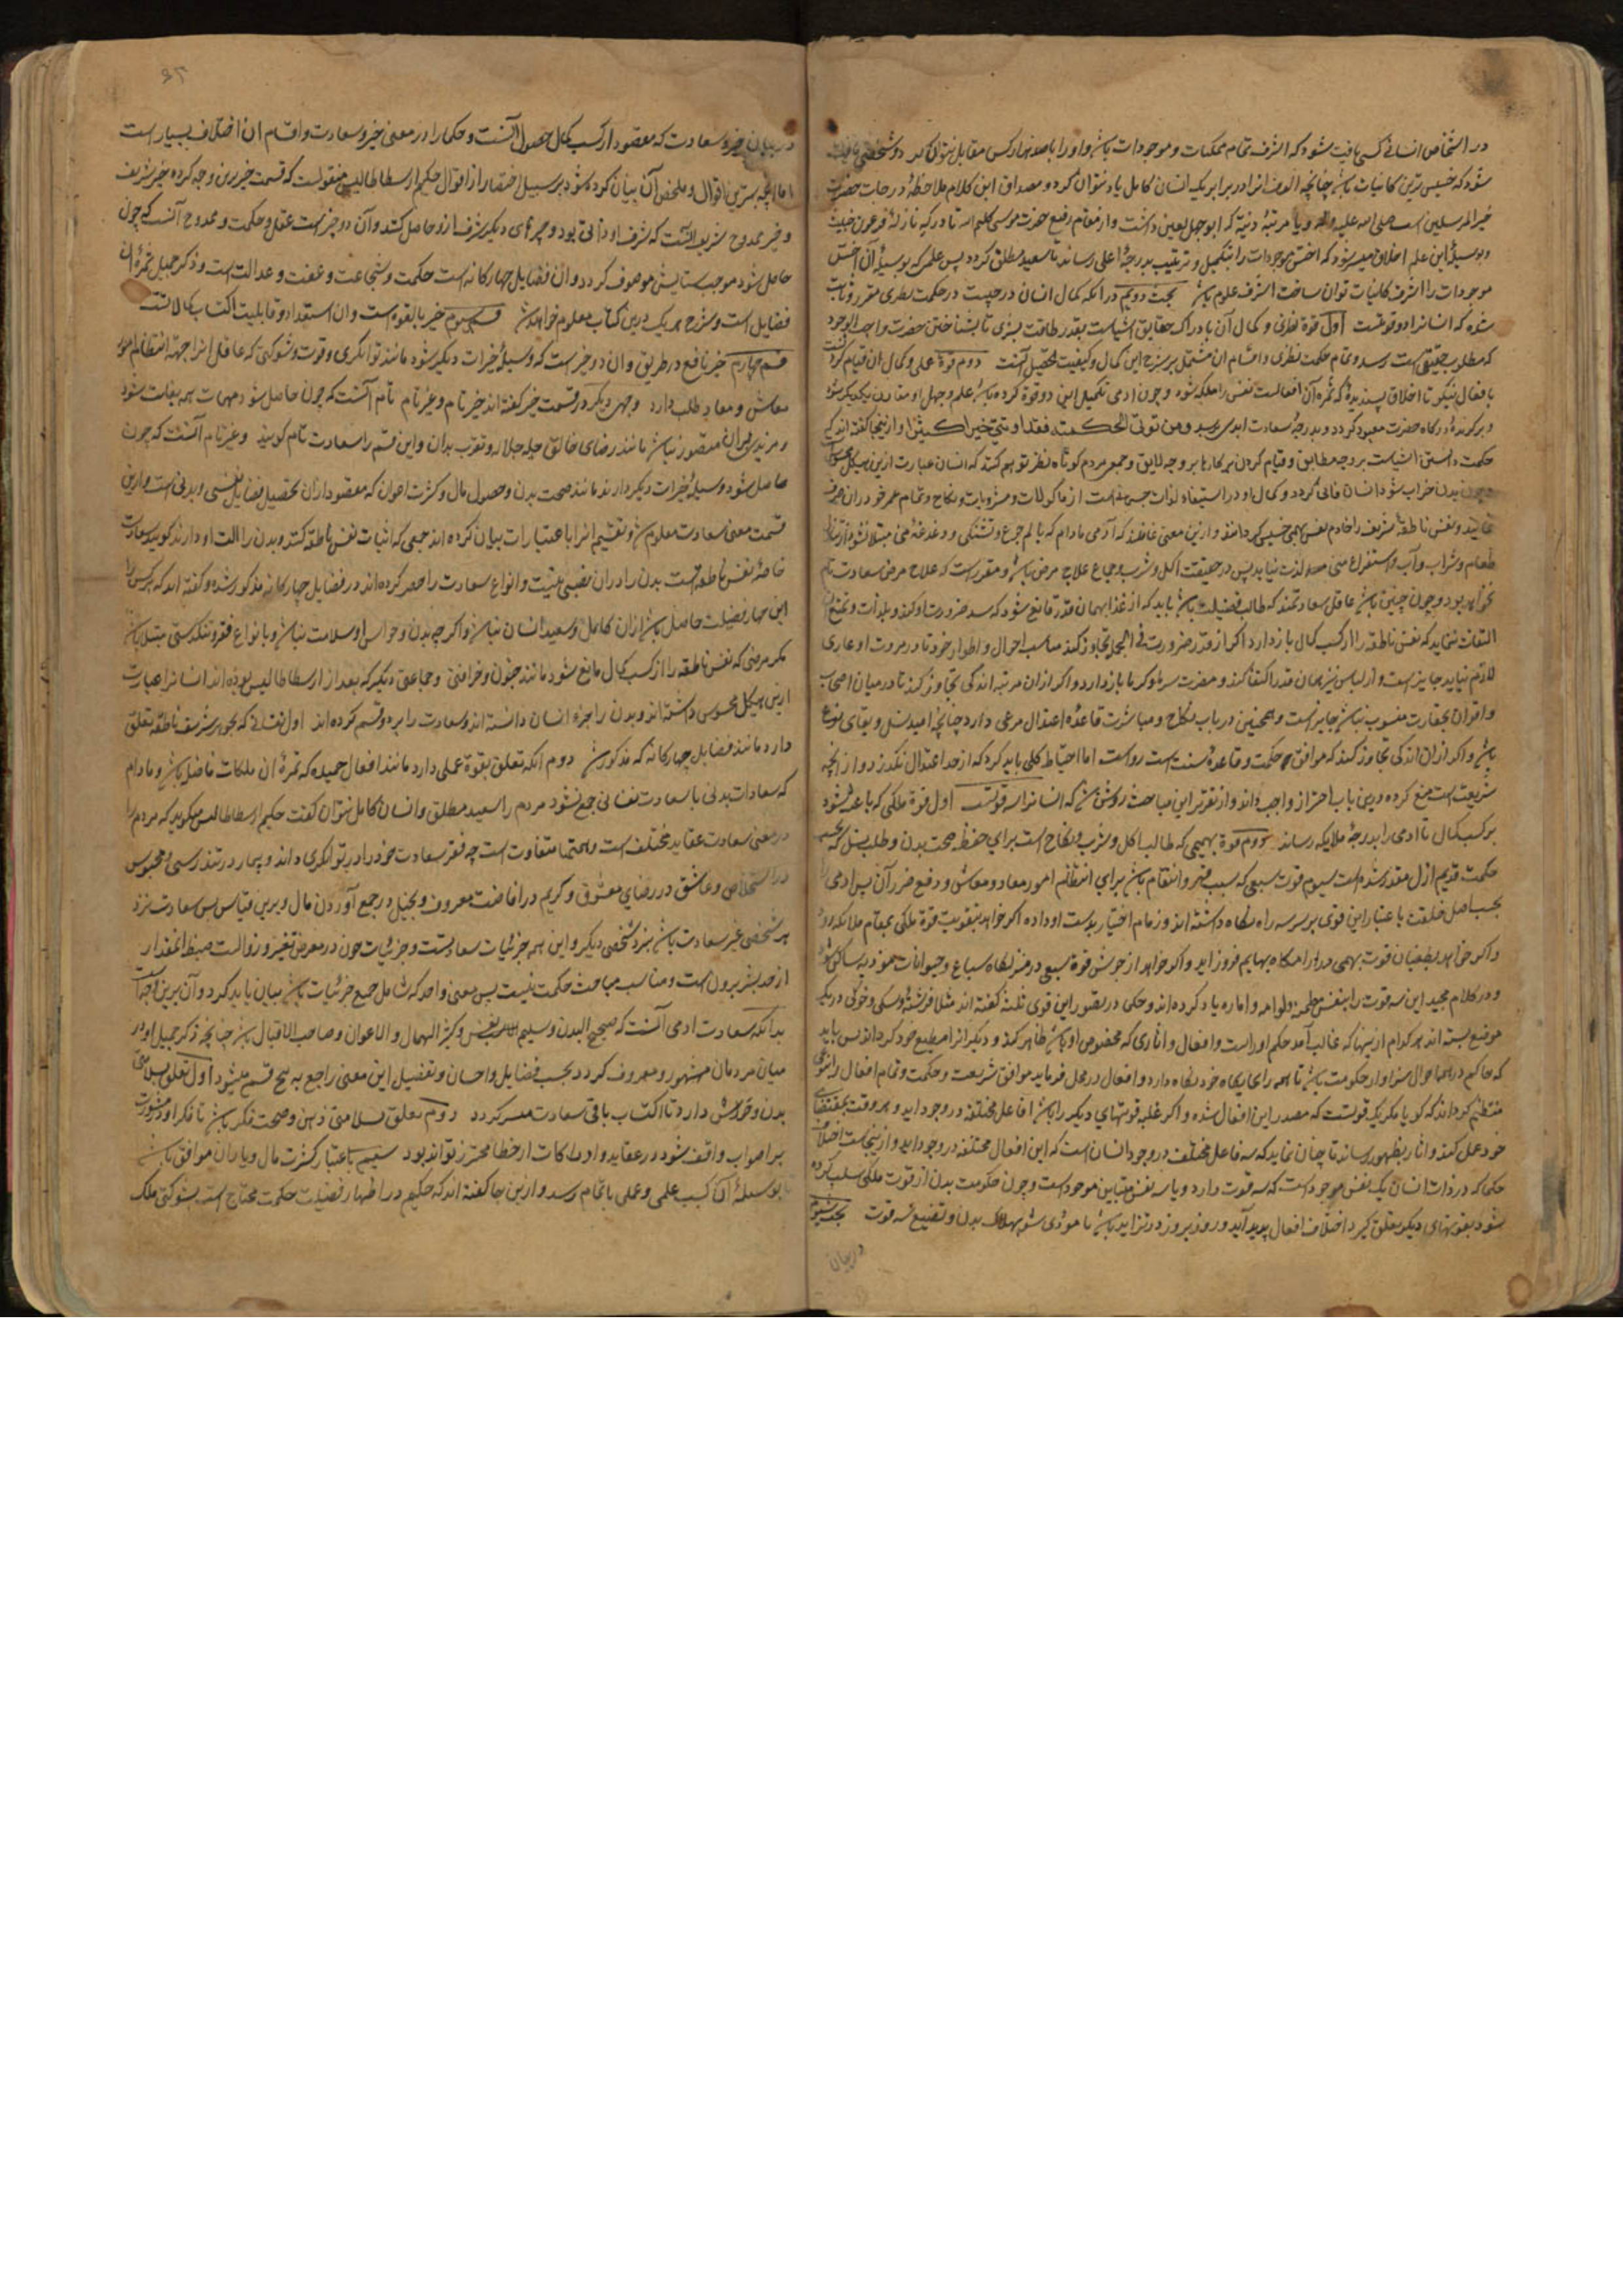 در اشخاص انسانی کسی یافت شود که اشرف تمام ممکنات و موجودات باشد و او را با صد هزار کس مقابل نتوان کرد و شخصی یافت
شود که خسیس ترین کاینات باشد چنانچه الوف انرا در برابر یک انسان کامل یاد نتوان کرد و مصداق این کلام ملاحظهٔ درجات حضرت
خیر المرسلین است صلی الله علیه واله و یا مرتبهٔ دنیهٔ که ابوجهل لعین داشت و از مقام رفیع حضرت موسی کلیم الله تا درکهٔ نازلهٔ فرعون خبیث
و بوسیلهٔ این علم اخلاق میسر شود که اخس موجودات را بتکمیل و تربیت بدرجهٔ اعلی رساند تا سعید مطلق گردد پس علمی که بوسیلهٔ آن اخس
موجودات را اشرف کاینات توان ساخت اشرف علوم باشد بحث دویم در انکه کمال انسان در چیست در حکمت نظری مقرر و ثابت
شده که انسانرا دو قوتست اول قوة نظری و کمال آن بادراک حقایق اشیاست بقدر طاقت بشری تا بشناختن حضرت واجب الوجود
که مطلوب حقیقی است رسد و تمام حکمت نظری و اقسام ان مشتمل بر شرح این کمال و کیفیت تحصیل آنست دوم قوة عملی و کمال ان قیام کردنست
بافعال نیکو تا اخلاق پسندیدهٔ که ثمرهٔ آن افعالست نفس را ملکه شود و چون ادمی تکمیل این دو قوة کرده باشد علم و عمل او مقارن یکدیگر شود
و برگزیدهٔ درگاه حضرت معبود گردد و بدرجهٔ سعادت ابدی برسد و من یوتی الحکمة فقد اوتی خیرا کثیرا و از اینجا گفته اند که
حکمت دانستن اشیاست بر وجه مطابق و قیام کردن بر کارها بر وجه لایق و جمعی مردم کوتاه نظر توهم کنند که انسان عبارت ازین هیکل محسوسست
و چون بدن خراب شود انسان فانی گردد و کمال او در استیفاء لذات جسمیه است از ماکولات و مشروبات و نکاح و تمام عمر خود در ان صرف
نمایند و نفس ناطقهٔ شریف را خادم نفس بهیمی خسیس گردانند و ازین معنی غافلند که آدمی مادام که بالم جوع و تشنگی و دغدغهٔ منی مبتلا نشود از تناول
طعام و شراب و آب و استفراغ منی لذت نیابد پس در حقیقت اکل و شرب و جماع علاج مرض باشد و مقرر است که علاج مرض سعادت تام
نخواهد بود و چون چنین باشد عاقل سعادتمند که طالب فضیلت باشد باید که از غذا بهمان قدر قانع شود که سد ضرورت او کند و بلذات و تمتع
التفات ننماید که نفس ناطقه را از کسب کمال باز دارد و اگر از قدر ضرورت فی الجمله تجاوز کند مناسب احوال و اطوار خود تا در مروت او عاری
لازم نیاید جایز است و از لباس نیز بهمان قدر اکتفا کند و مضرت سرما و گرما باز دارد و اگر ازان مرتبه اندکی تجاوز کند تا در میان اصحاب
و اقران بحقارت منسوب نباشد جایز است و همچنین در باب نکاح و مباشرت قاعدهٔ اعتدال مرعی دارد چنانچه امید نسل و بقای نوع
باشد و اگر ازان اندکی تجاوز کند که موافق حکمت و قاعدهٔ سنت است رواست اما احتیاط کلی باید کرد که از حد اعتدال نگذرد و از آنچه
شریعت است منع کرده درین باب احتراز واجب داند و از تقریر این مباحث روشن شد که انسانرا سه قوتست اول قوة ملکی که باعث شود
بر کسب کمال تا ادمی را بدرجهٔ ملایکه رساند دوم قوة بهیمی که طالب اکل و شرب و نکاح است برای حفظ صحت بدن و طلب نسل که بحسب
حکمت قدیم ازل مقدر شده است سیوم قوت سبعی که سبب قهر و انتقام باشد برای انتظام امور معاد و معاش و دفع ضرر آن پس ادمی را
بحسب اصل خلقت باعتبار این قوی بر سر سه راه نگاه داشته اند و زمام اختیار بدست او داده اگر خواهد بتقویت قوة ملکی بمقام ملائکه رود
و اگر خواهد بطغیان قوت بهیمی در اوامکاه بهایم فرود آید و اگر خواهد از جوشش قوة سبعی در منزلگاه سباع و حیوانات موذیه ساکن شود
و در کلام مجید این سه قوت را بنفس مطمئنه و لوامه و اماره یاد کرده اند و حکما در تصور این قوی ثلثه گفته اند مثلا فرشتهٔ و سگی و خوکی در یک
موضع بسته اند هر کدام ازینها که غالب آمد حکم او راست و افعال و اثاری که مخصوص او باشد ظاهر کند و دیگر انرا مطیع خود گرداند پس باید
که حاکم در همه احوال سزاوار حکومت باشد تا همه را بجایگاه خود نگاه دارد و افعال در محل فرماید موافق شریعت و حکمت و تمام افعال را بنوعی
منتظم گرداند که گویا مگر یک قوتست که مصدر این افعال شده و اگر غلبه قوتهای دیگر را باشد افاعل مختلفه در وجود اید و هر وقت بمقتضای
خود عمل کند و اثار بظهور رساند تا چنان نماید که سه فاعل مختلف در وجود انسان است که این افعال مختلفه در وجود اید و از اینجاست اختلاف
حکما که در ذات انسان یک نفس موجود است که سه قوت دارد و یا سه نفس متباین موجود است و چون حکومت بدن از قوت ملکی سلب کرده
شود بقوتهای دیگر تعلق گیرد اختلاف افعال پدید آید و روز بروز در تزاید باشد تا مودی شود بهلاک بدن و تضییع سه قوت بحث سیوم
در بیان
در بیان خیر و سعادت که مقصود از کسب کمال حصول آنست و حکما را در معنی خیر و سعادت و اقسام ان اختلاف بسیار است
اما آنچه بهترین اقوال و ملخص آن بیان کرده شود بر سبیل اختصار از اقوال حکیم ارسطاطالیس منقولست که قسمت خیر برین وجه کرده خیر شریف
و خیر ممدوح شریف آنست که شرف او ذاتی بود و چیزهای دیگر شرف ازو حاصل کنند و آن دو چیز است عقل و حکمت و ممدوح آنست که چون
حاصل شود موجب ستایش موصوف گردد و ان فضایل چهارگانه است حکمت و شجاعت و عفت و عدالت است و ذکر جمیل ثمرهٔ ان
فضایل است و شرح هر یک درین کتاب معلوم خواهد شد قسم سیوم خیر بالقوه است و ان استعداد و قابلیت اکتساب کمالاتست
قسم چهارم خیر نافع در طریق و ان دو خیر است که وسیلهٔ خیرات دیگر شود مانند توانگری و قوت و شوکتی که عاقل انرا جهة انتظام امور
معاش و معاد طلب دارد و وجهی دیگر در قسمت خیر گفته اند خیر تام و غیر تام تام آنست که چون حاصل شود مهمات همه بغایت شود
و مزیدی بران متصور نباشد مانند رضای خالق جل جلاله و تقرب بدان و این قسم را سعادت تام گویند و غیر تام آنست که چون
حاصل شود وسیلهٔ خیرات دیگر دارند مانند صحت بدن و حصول مال و کثرت اخوان که مقصود ازان تحصیل فضایل نفسی و بدنی است و ازین
قسمت معنی سعادت معلوم شد و تقسیم انرا باعتبارات بیان کرده اند جمعی که اثبات نفس ناطقه کنند و بدن را الت او دارند گویند سعادت
خاصهٔ نفس ناطقه است بدن را دران نصیبی نیست و انواع سعادت را حصر کرده اند در فضایل چهارگانه مذکور شده و گفته اند که هر کس را
این چهار فضیلت حاصل باشد ازان کامل و سعید انسان نباشد و اگر چه بدن و حواس او سلامت نباشد و بانواع فقر و تنگدستی مبتلا باشد
مگر مرضی که نفس ناطقه را از کسب کمال مانع شود مانند جنون و خرافتی و جماعتی دیگر که بعد از ارسطاطالیس بوده اند انسانرا عبارت
ازین هیکل محسوس داشته اند و بدن را جزء انسان دانسته اند و سعادت را بر دو قسم کرده اند اول نفسانی که بجوهر شریف ناطقه تعلق
دارد مانند فضایل چهارگانه که مذکور شد دوم آنکه تعلق بقوة عملی دارد مانند افعال حمیده که ثمرهٔ ان ملکات فاضل باشد و مادام
که سعادات بدنی با سعادت نفسانی جمع نشود مردم را سعید مطلق و انسان کامل نتوان گفت حکیم ارسطاطالیس میگوید که مردم را
در معنی سعادت عقاید مختلف است و اهتمامها متفاوت است چه فقیر سعادت خود را در توانگری داند و بیمار در تندرستی و محبوس
در استخلاص و عاشق در رضای معشوق و کریم در افاضت معروف و بخیل در جمع آوردن مال و برین قیاس پس سعادت نزد
هر شخصی غیر سعادت باشد نزد شخصی دیگر و این همه جزئیات سعادتست و جزئیات چون در معرض تغیر و زوالست ضبط انمقدار
از حد بشر بیرون است و مناسب مباحث حکمت نیست پس معنی واحد که شامل جمیع جزئیات باشد بیان باید کرد و آن برین وجه است
بدانکه سعادت ادمی آنست که صحیح البدن و سلیم النفس و کثیر المال و الاعوان و صاحب الاقبال باشد چنانچه ذکر جمیل او در
میان مردمان مشهور و معروف گردد بحسب فضایل و احسان و تفصیل این معنی راجع به پنج قسم میشود اول تعلق بسلامتی
بدن و حواس دارد تا اکتساب باقی سعادت میسر گردد دوم تعلق بسلامتی ذهن و صحت فکر باشد تا فکر او در مشورت
بر صواب واقف شود و در عقاید و ادراکات از خطا محترز تواند بود سیوم باعتبار کثرت مال و یاران موافق باشد
تا بوسیلهٔ آن کسب علمی و عملی باتمام رسد و ازین جا گفته اند که حکیم در اظهار فضیلت حکمت محتاج است بشوکتی ملک